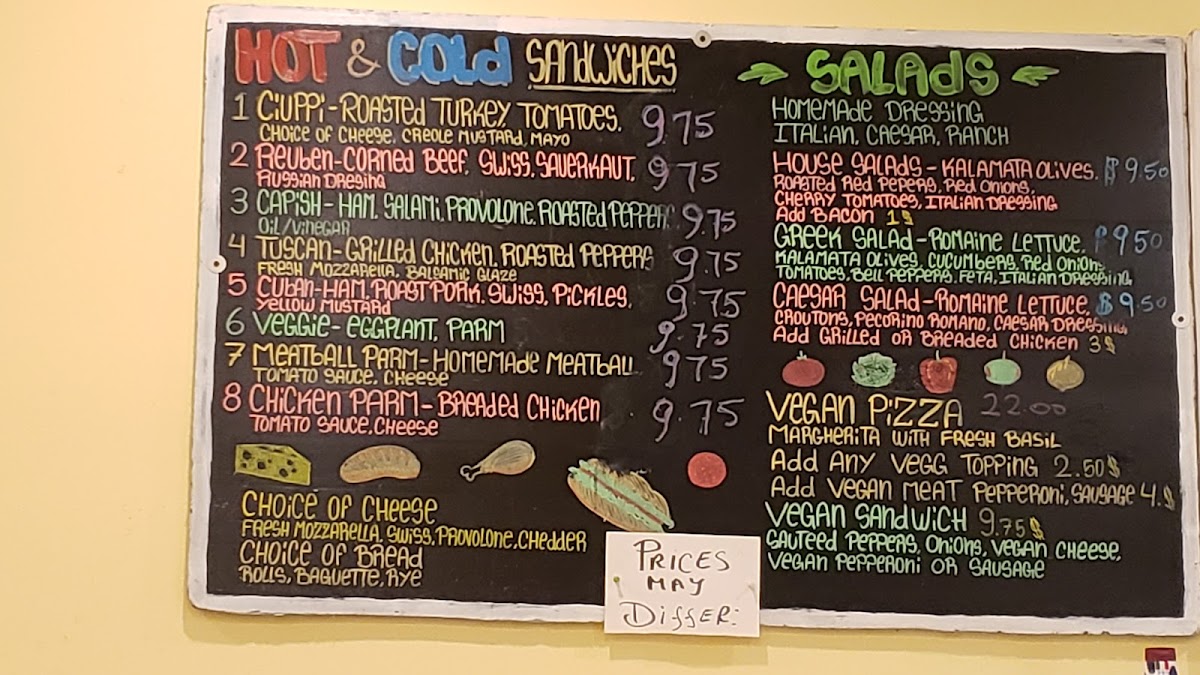 HOT & COLD SANDWICHES
1 CIUPPI - ROASTED TURKEY TOMATOES. 9.75
CHOICE OF CHEESE, CREOLE MUSTARD, MAYO
2 REUBEN - CORNED BEEF, SWISS, SAUERKAUT, 9.75
RUSSIAN DRESING
3 CAPISH - HAM, SALAMI, PROVOLONE, ROASTED PEPPERS 9.75
OIL/VINEGAR
4 TUSCAN - GRILLED CHICKEN, ROASTED PEPPERS 9.75
FRESH MOZZARELLA, BALSAMIC GLAZE
5 CUBAN - HAM, ROAST PORK, SWISS, PICKLES, 9.75
YELLOW MUSTARD
6 VEGGIE - EGGPLANT, PARM 9.75
7 MEATBALL PARM - HOMEMADE MEATBALL 9.75
TOMATO SAUCE, CHEESE
8 CHICKEN PARM - BREADED CHICKEN 9.75
TOMATO SAUCE, CHEESE
CHOICE OF CHEESE
FRESH MOZZARELLA, SWISS, PROVOLONE, CHEDDER
CHOICE OF BREAD
ROLLS, BAGUETTE, RYE
PRICES
MAY
DIFFER:
SALADS
HOMEMADE DRESSING
ITALIAN, CAESAR, RANCH
HOUSE SALADS - KALAMATA OLIVES. $ 9.50
ROASTED RED PEPERS, RED ONIONS,
CHERRY TOMATOES, ITALIAN DRESSING
ADD BACON 1$
GREEK SALAD - ROMAINE LETTUCE, $ 9.50
KALAMATA OLIVES, CUCUMBERS, RED ONIONS
TOMATOES, BELL PEPPERS, FETA, ITALIAN DRESSING,
CAESAR SALAD - ROMAINE LETTUCE, $ 9.50
CROUTONS, PECORINO ROMANO, CAESAR DRESSING,
ADD GRILLED OR BREADED CHICKEN 3$
VEGAN PIZZA 22.00
MARGHERITA WITH FRESH BASIL
ADD ANY VEGG TOPPING 2.50$
ADD VEGAN MEAT PEPPERONI, SAUSAGE 4.$
VEGAN SANDWICH 9.75$
SAUTEED PEPPERS, ONIONS, VEGAN CHEESE,
VEGAN PEPPERONI OR SAUSAGE